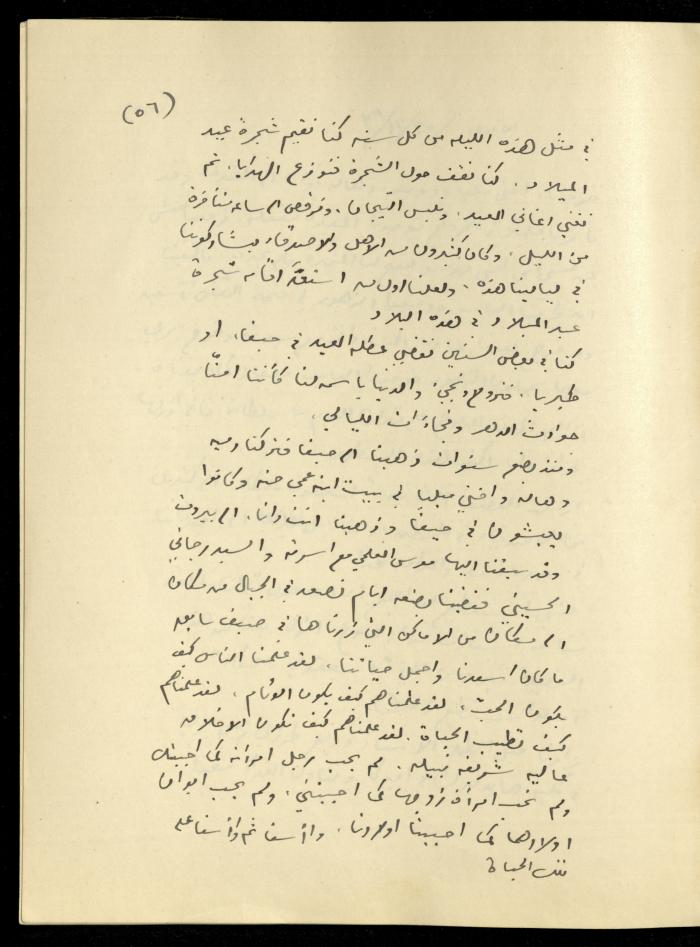 (٥٦)
في مثل هذه الليله من كل سنه كنا نقيم شجرة عيد
الميلاد. كنا نقف حول الشجرة فنوزع الهدايا. ثم
نغني اغاني العيد. ونلبس التيجان. ونرقص الى ساعه متأخرة
من الليل. وكان كثيرون من الاهل والاصدقاء يشاركوننا
في ليالينا هذه. ولعلنا اول من استعدَّ اقامة شجرة
عيد الميلاد في هذه البلاد
كنا في بعض السنين نقضي عطله العيد في حيفا، او
طبريا. فنروح ونجيء والدنيا باسمه لنا كأننا امنّا
حوادث الدهر وفجاءَات الليالي.
ومنذ بضع سنوات ذهبنا الى حيفا فتركنا دميه
وهاله واختي ميليا في بيت ابنه عمي حنه وكانوا
يعيشون في حيفا وذهبنا انت وانا. الى بيروت
وقد سبقنا اليها موسى العلمي مع اسرته والسيد رجائي
الحسيني فقضينا بضعه ايام نصعد في الجبال من مكان
الى مكان من الاماكن التي زرناها في صيف سابق
ما كان اسعدنا واجمل حياتنا، لقد علمنا الناس كيف
يكون الحبّ، لقد علمناهم كيف يكون الوئام، لقد علمناهم
كيف تطيب الحياة. لقد علمناهم كيف تكون الاخلاق
عاليه شريفه نبيله. لم يحب رجل امرأته كما احببتك
ولم تحب امرأة زوجها كما احببتني، ولم يحب ابوان
اولادهما كما احببنا اولادنا. وا أسفا ثم وا أسفا على
تلك الحياة